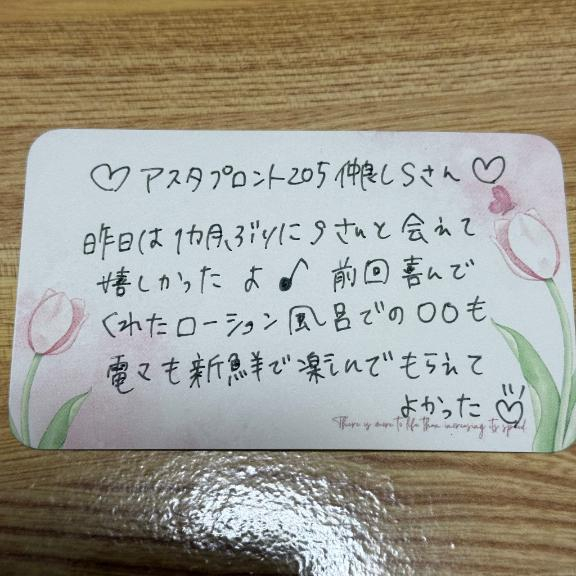 ♡アスタプロント205仲良しSさん♡
昨日は1カ月ぶりにSさんと会えて
嬉しかったよ♪ 前回喜んで
くれたローション風呂での〇〇も
電マも新鮮で楽しんでもらえて
よかった♡
There is more to life than increasing its speed.